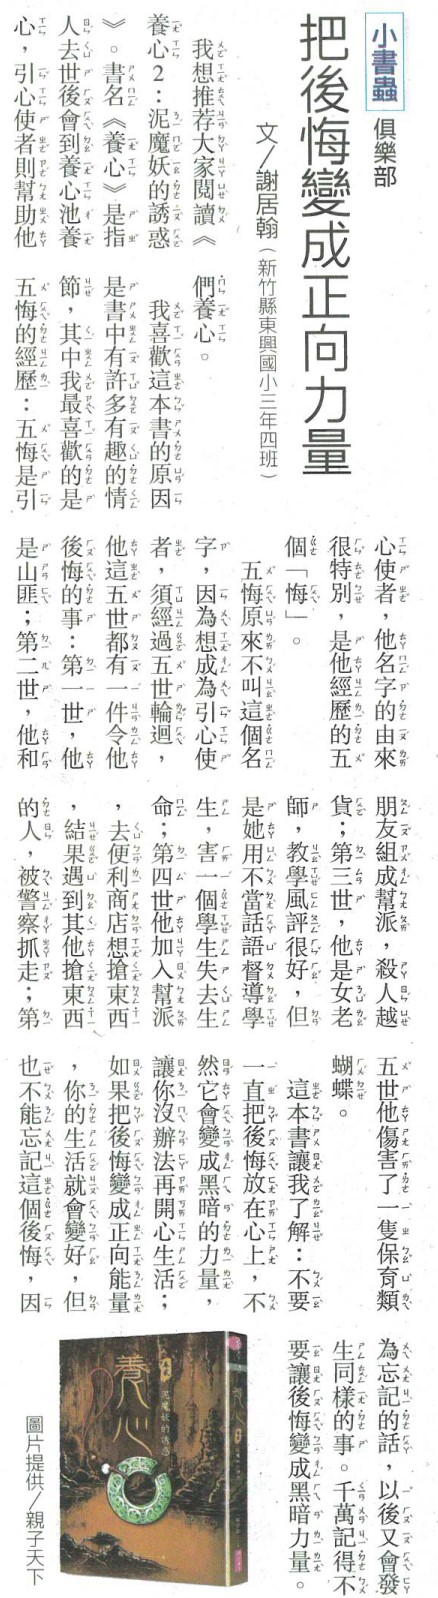 小書蟲 俱樂部
把後悔變成正向力量
文／謝居翰（新竹縣東興國小三年四班）
我想推荐大家閱讀《
養心2：泥魔妖的誘惑
》。書名《養心》是指
人去世後會到養心池養
心，引心使者則幫助他
們養心。
我喜歡這本書的原因
是書中有許多有趣的情
節，其中我最喜歡的是
五悔的經歷：五悔是引
心使者，他名字的由來
很特別，是他經歷的五
個「悔」。
五悔原來不叫這個名
字，因為想成為引心使
者，須經過五世輪迴，
他這五世都有一件令他
後悔的事：第一世，他
是山匪；第二世，他和
朋友組成幫派，殺人越
貨；第三世，他是女老
師，教學風評很好，但
是她用不當話語督導學
生，害一個學生失去生
命；第四世他加入幫派
，去便利商店想搶東西
，結果遇到其他搶東西
的人，被警察抓走；第
五世他傷害了一隻保育類
蝴蝶。
這本書讓我了解：不要
一直把後悔放在心上，不
然它會變成黑暗的力量，
讓你沒辦法再開心生活；
如果把後悔變成正向能量
，你的生活就會變好，但
也不能忘記這個後悔，因
為忘記的話，以後又會發
生同樣的事。千萬記得不
要讓後悔變成黑暗力量。
養心
泥魔妖的誘惑
養心
圖片提供／親子天下